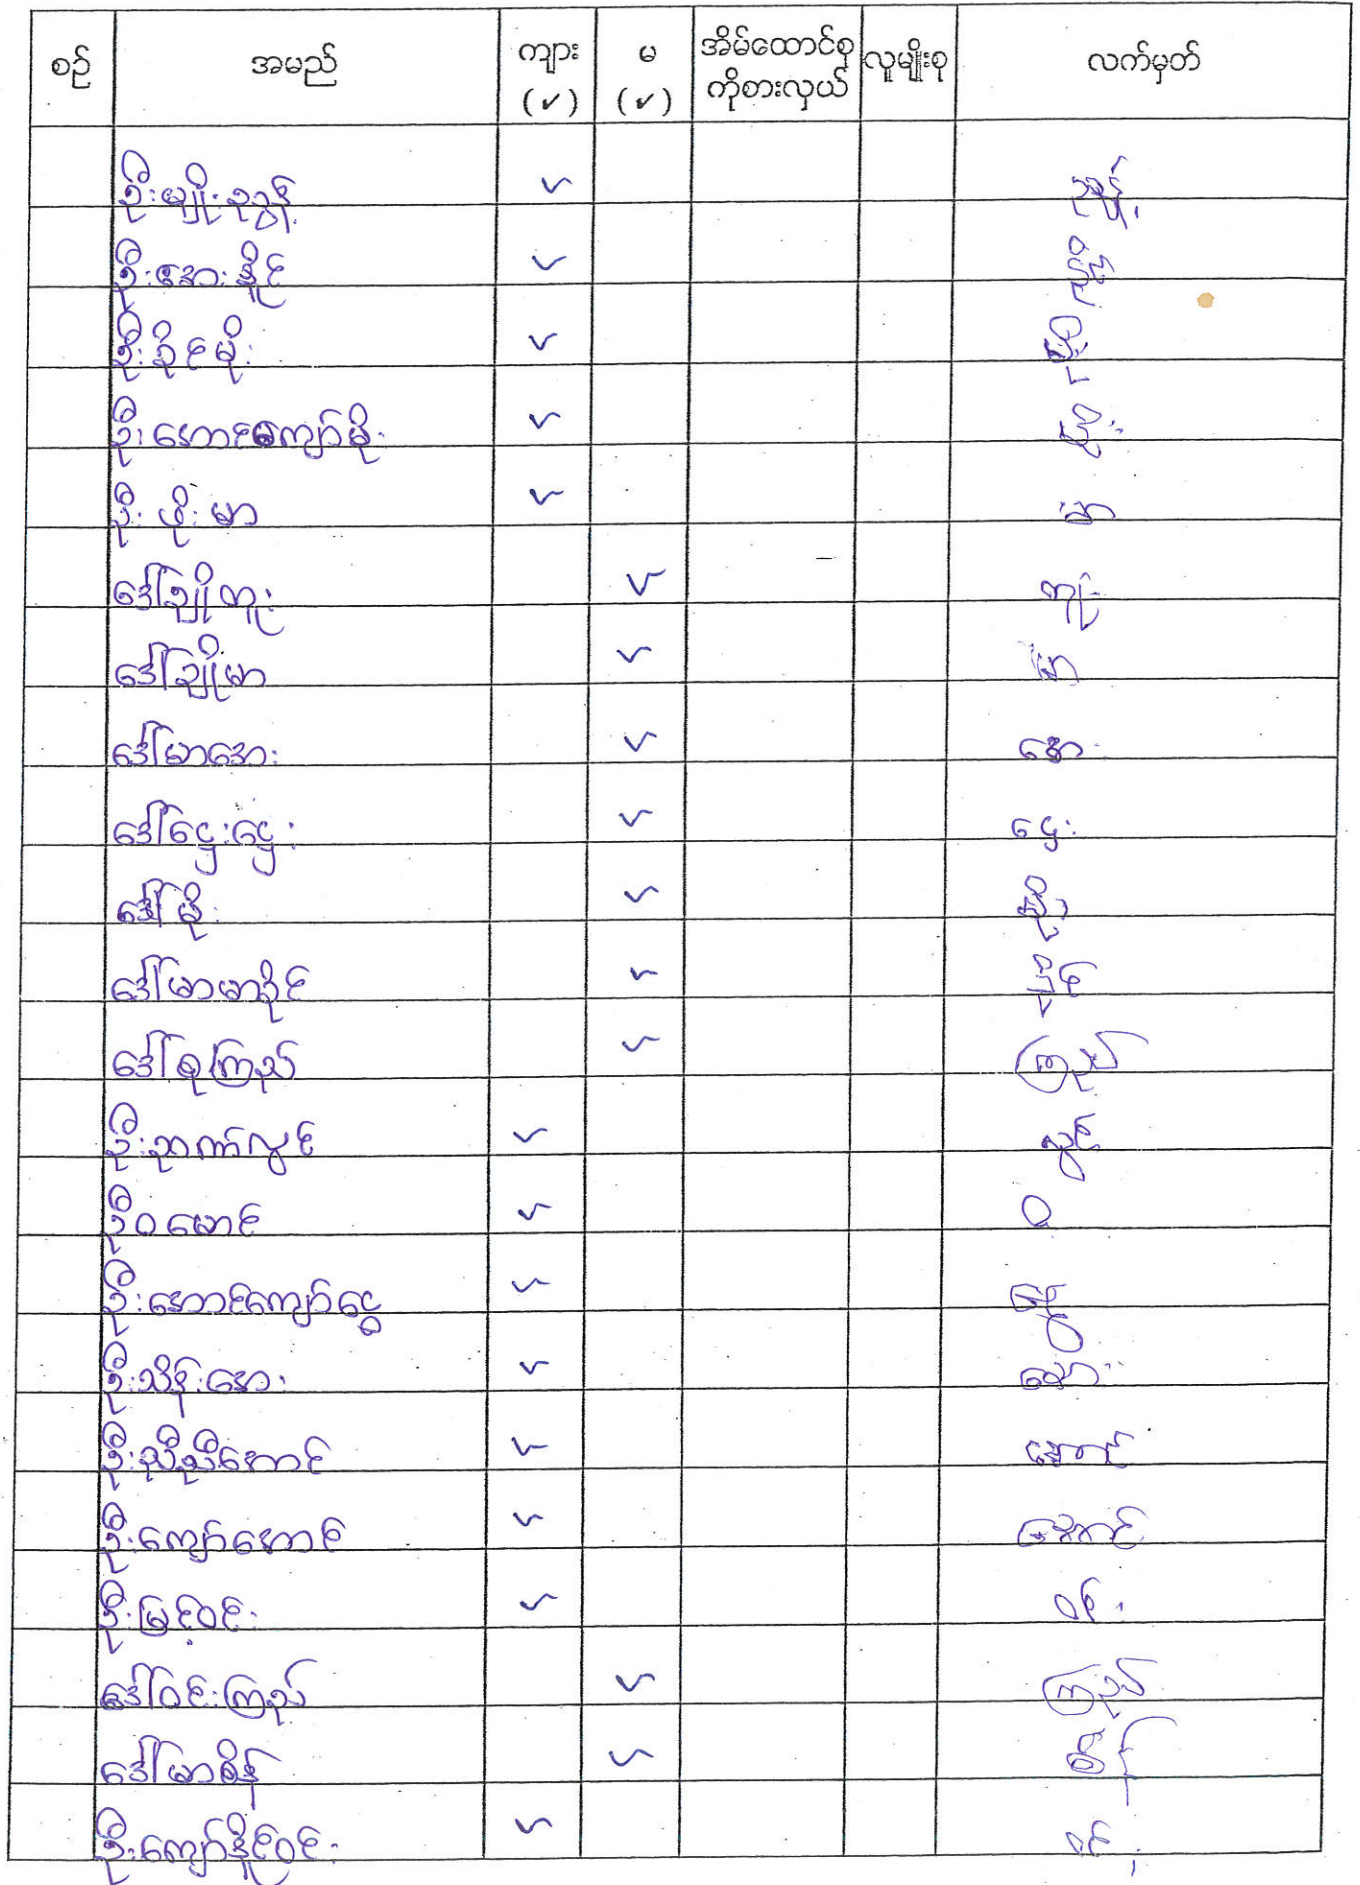 စဉ် အမည် ကျား (✓) မ (✓) အိမ်ထောင်စု ကိုစားလှယ် လူမျိုးစု လက်မှတ်
ဦးမျိုးညွန့် ✓
ဦးအေးနိုင် ✓
ဦးခိုင်မိုး ✓
ဦးအောင်ကျော်မိုး ✓
ဦးဖိုးမာ ✓ မာ
ဒေါ်ချိုတူး ✓
ဒေါ်ချိုမာ ✓ မာ
ဒေါ်မာအေး ✓ အေး
ဒေါ်ဌေးဌေး ✓ ဌေး
ဒေါ်မိုး ✓
ဒေါ်မာမာခိုင် ✓
ဒေါ်စုကြည် ✓ ကြည်
ဦးဉာဏ်လွင် ✓ လွင်
ဦးဝမောင် ✓ ဝ
ဦးအောင်ကျော်ငွေ ✓
ဦးသိန်းအေး ✓ အေး
ဦးညီညီအောင် ✓ အောင်
ဦးကျော်အောင် ✓ အောင်
ဦးမြင့်ဝင်း ✓ ဝင်း
ဒေါ်ဝင်းကြည် ✓ ကြည်
ဒေါ်မာစိန် ✓ စိန်
ဦးကျော်နိုင်ဝင်း ✓ ဝင်း